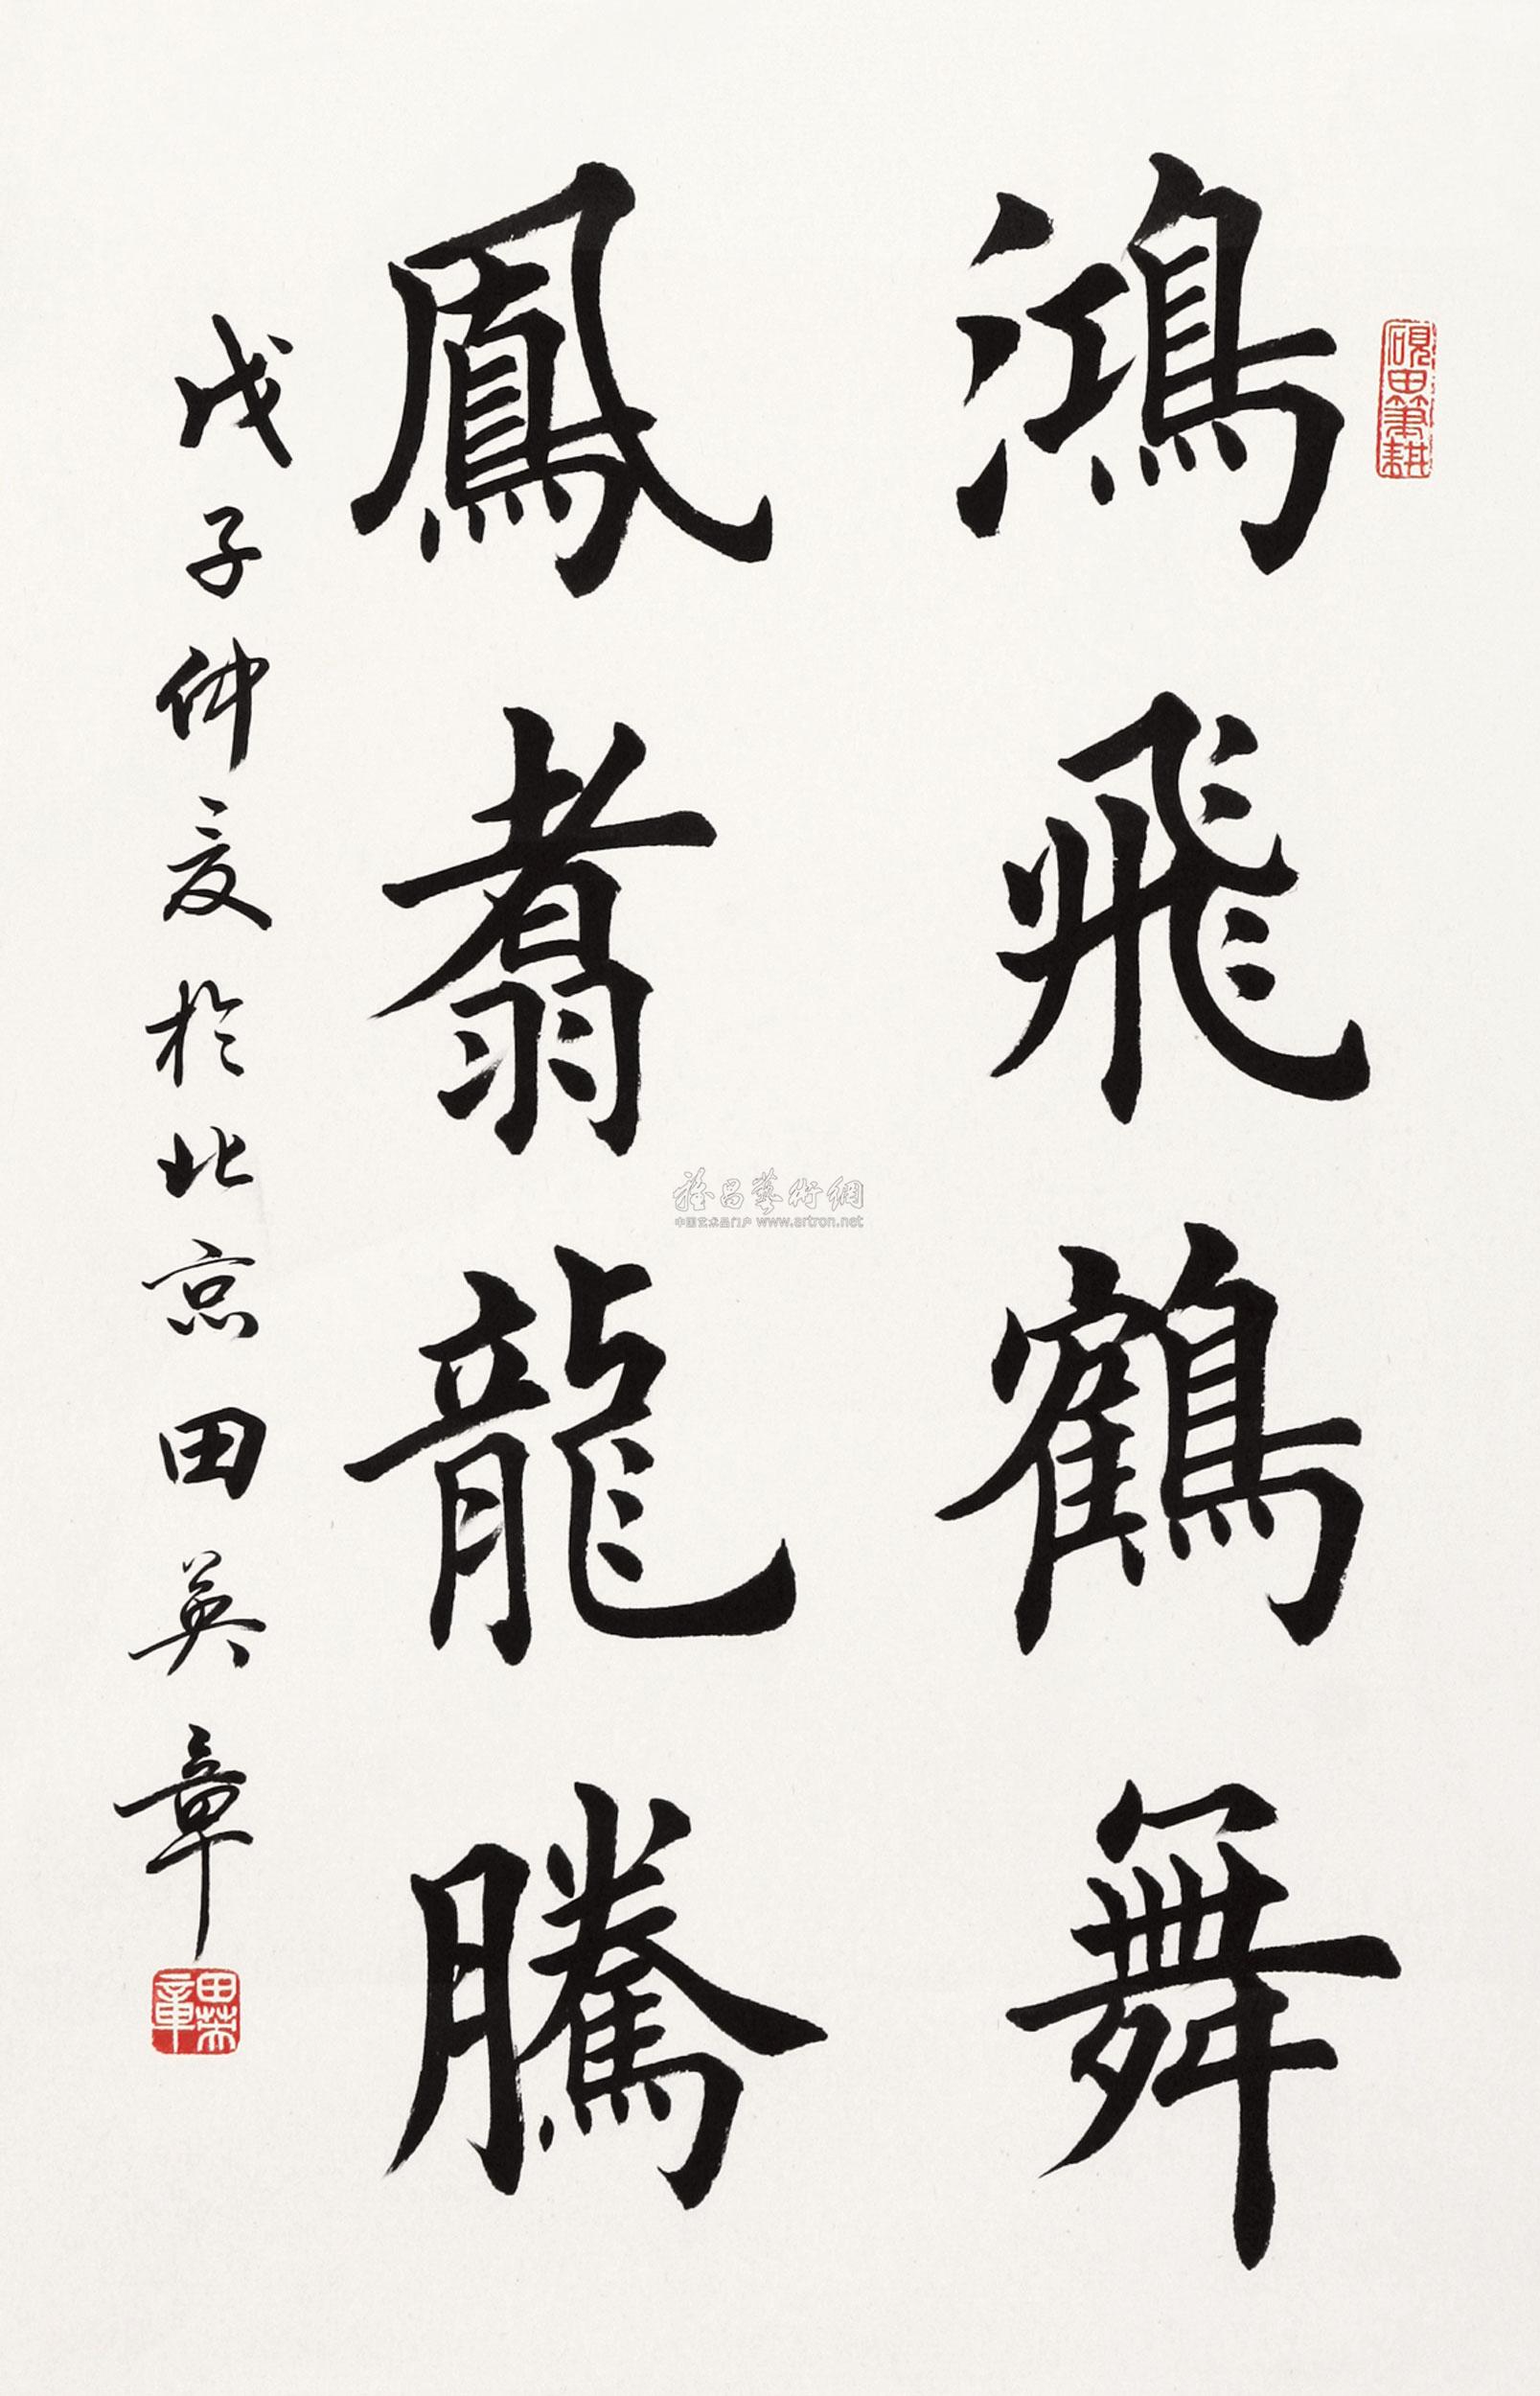 硯田筆耕
鴻飛鶴舞
鳳翥龍騰
戊子仲夏於北京田英章
田英章
雅昌藝術網
中国艺术品门户 www.artron.net